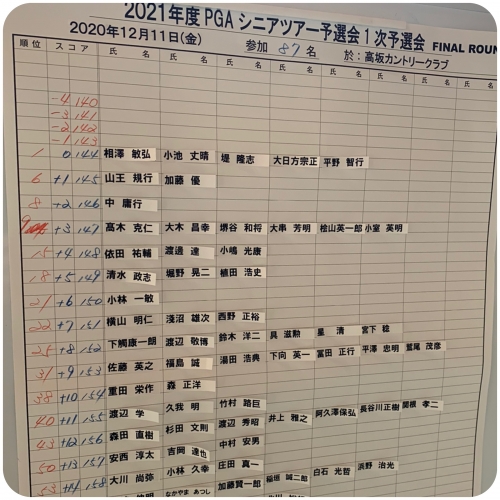 2021年度 PGA シニアツアー予選会 1 次予選会 FINAL ROUN
2020年12月11日(金) 参加 87 名 於：高坂カントリークラブ
順位 スコア 氏 名 氏 名 氏 名 氏 名 氏 名 氏 名 氏 名 氏 名
-4 140
-3 141
-2 142
-1 143
1 0 144 相澤 敏弘 小池 丈晴 堤 隆志 大日方宗正 平野 智行
6 +1 145 山王 規行 加藤 優
8 +2 146 中 庸行
9 +3 147 高木 克仁 大木 昌幸 堺谷 和将 大串 芳明 桧山英一郎 小室 英明
15 +4 148 依田 祐輔 渡邊 達 小嶋 光康
18 +5 149 清水 政志 堀野 晃二 植田 浩史
21 +6 150 小林 一敏
22 +7 151 横山 明仁 淺沼 雄次 西野 正裕
25 +8 152 下觸康一朗 渡辺 敬博 鈴木 洋二 具 滋勲 星 清 宮下 稔
31 +9 153 佐藤 英之 福島 誠 湯田 浩典 下向 英一 冨田 正行 平澤 忠明 鷲尾 茂彦
38 +10 154 重田 栄作 森 正洋
40 +11 155 渡辺 学 久我 明 竹村 路巨
43 +12 156 森田 直樹 杉田 文則 渡辺 秀昭 井上 雅之 阿久澤保弘 長谷川正樹 関根 孝二
50 +13 157 安西 淳太 吉岡 達也 中村 安男
53 +14 158 大川 尚弥 小林 久幸 庄田 真一 稲垣 誠二郎 白石 光哲 浜野 治光
なかやま あつし 加藤賢一郎